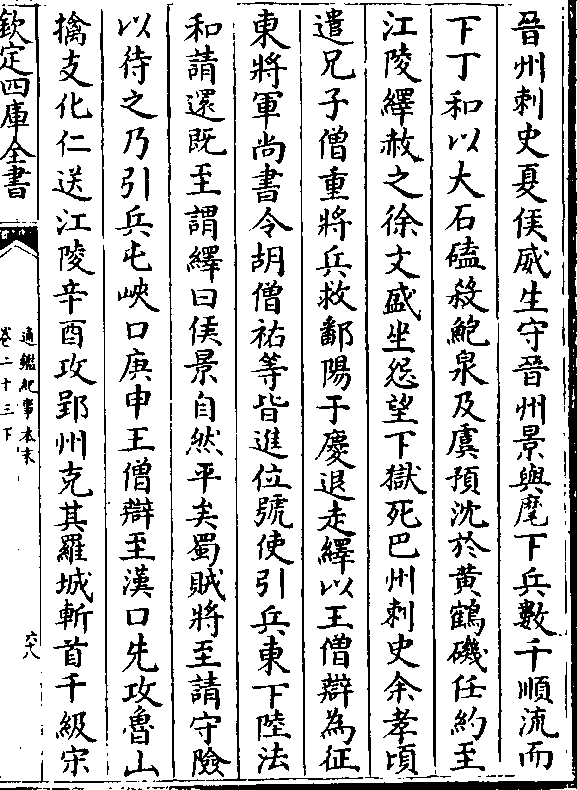 晉州刺史夏侯威生守晉州景與麾下兵數千順流而
下丁和以大石磕殺鮑泉及虞預沈於黃鶴磯任約至
江陵繹赦之徐文盛坐怨望下獄死巴州刺史余孝頃
遣兄子僧重將兵救鄱陽于慶退走繹以王僧辯為征
東將軍尚書令胡僧祐等皆進位號使引兵東下陸法
和請還既至謂繹曰侯景自然平矣蜀賊將至請守險
以待之乃引兵屯峽口庚申王僧辯至漢口先攻魯山
擒支化仁送江陵辛酉攻郢州克其羅城斬首千級宋
欽定四庫全書
通鑑紀事本末
卷二十三下
六八